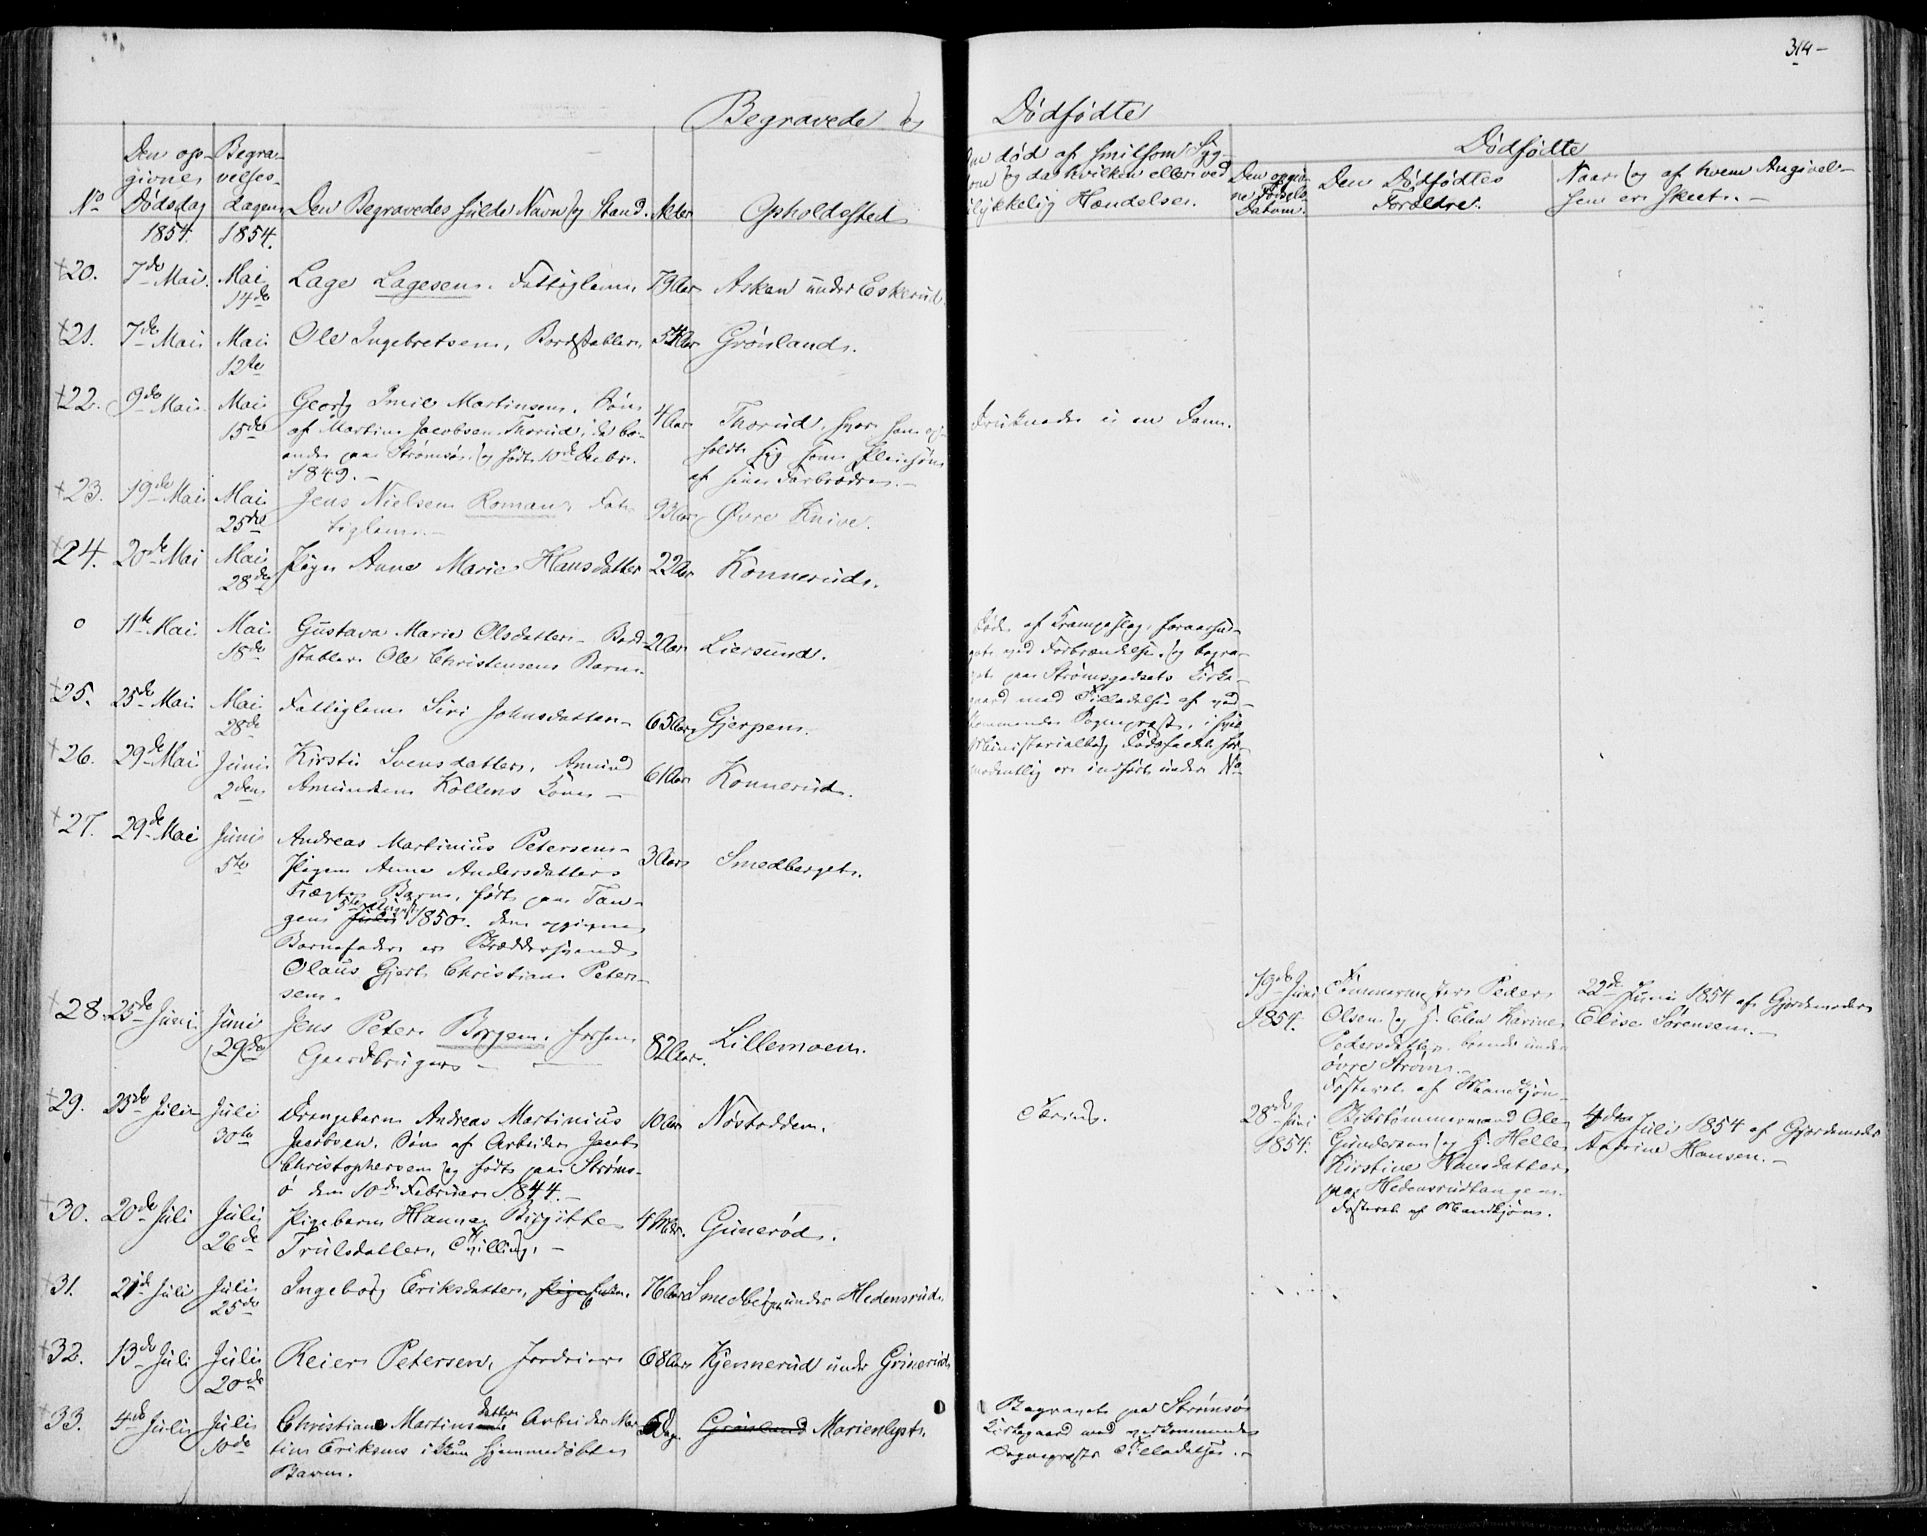 314-
Begravede og Dødfødte
No
Den op-
givne
Dødsdag
1854.
Begra-
velses-
Dagen
1854.
Den Begravedes fulde Navn og Stand.
Alder
Opholdssted
død af smitsom Syg-
og da hvilken eller ved
lykkelig Hændelse.
Dødfødte
Den opgiv-
ne Fødsels
Datum.
Den Dødfødtes
Forældre.
Naar og af hvem Angivel-
sen er skeet.-
20. 7de Mai. Mai 14de Lage Lagesen. Fattiglem. 79 Aar Asken under Eskerud.
21. 7de Mai Mai 12te Ole Ingebretsen, Bordstabler, 54 Aar Grønland.
22. 9de Mai Mai 15de Georg Emil Martinsen. Søn
af Martin Jacobsen Thorud, de bo-
ende paa Strømsø og født 10de Decbr.
1849.-
4 Aar
Thorud, hvor han op-
holdt sig som Pleiesøn
af sin Farbroder.-
Druknede i en Dam.
23. 19de Mai Mai 25de Jens Nielsen Roman, Fat-
tiglem.-
93 Aar Øvre Knive.
24. 20de Mai Mai 28de Pige Anne Marie Hansdatter 22 Aar Konnerud.
o 11te Mai Mai 18de Gustava Marie Olsdatter - Bord-
stabler Ole Christensens Barn.
2 Aar Liersund.
Døde af Krampeslag, foraarsa-
get ved Forbrændelse, og begra-
vet paa Strømsgodsets Kirke-
gaard med Tilladelse af ved-
kommende Sogneprest, i hvis
Ministerialbog Dødsfaldet for-
modentlig er indført under No
25. 25de Mai Mai 28de Fattiglem Siri Johnsdatter 65 Aar Gjerpen.
26. 29de Mai Juni 2den Kirsti Svensdatter, Amund
Amundsen Kollens Kone -
61 Aar Konnerud.
27. 29de Mai Juni 5te Andreas Martinius Petersen-
Pigen Anne Andersdatter
Barn, født paa Tan-
gen 5te 1850. Den opgivne
Barnefader er
Olaus Gjert Christian Peter-
sen.
3 Aar Smedberget.
28. 25de Juni. Juni 29de Jens Peter Borgen, forhen
Gaardbruger -
82 Aar. Lillemoen.
19de Juni
1854.
Tømmermester Peder
Olsen og H. Elen Karine
Pedersdatter, boende under
øvre Strøm.
Fosteret af Mandkjøn
22de Juni 1854 af Gjordemoder
Elise Sørensen.-
29. 23de Juli Juli 30te Drengebarn Andreas Martinius
Jacobsen, Søn af Arbeider Jacob
Christophersen og født paa Strøms-
ø den 10de Februar 1844.-
10 Aar Nøstodden.
28de Juni
1854.
Bybstømmermand Ole
Gundersen og H. Helle
Kirstine Hansdatter
paa Hedensrudtangen.
Fosteret af Mandkjøn.
4de Juli 1854 af Gjordemoder
Hansen.-
30. 20de Juli Juli 26de Pigebarn Hanna Birgitte
Trulsdatter, Tvilling.-
4 Mdr. Gunerød.
31. 21de Juli Juli 25de Ingeborg Eriksdatter, 76 Aar Smedberg under Hedensrud.
32. 13de Juli Juli 20de Reier Petersen, Jordeier 68 Aar Kjennerud under Grinerud
33. 4de Juli Juli 10de Christiane Martinsdatter Arbeider Mar-
tin Eriksens i Skun hjemmedøbte
Barn.
6 Dage. Grønland Marienlyst.
Begravet paa Strømsø
Kirkegaard med vedkommende
Sogneprests Tilladelse.-